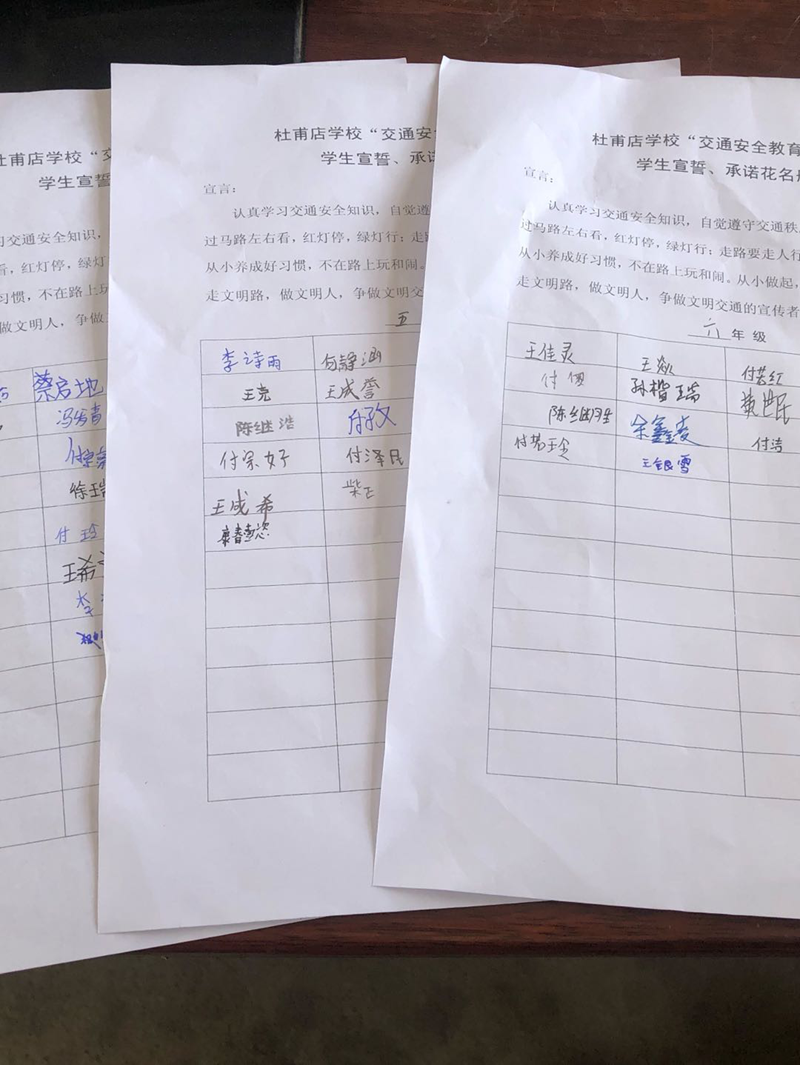 杜甫店学校“交
学生宣
交通安全知识，
看，红灯停，
好习惯，不在路上玩
文明人，争做
蔡启地
徐
付
王希
杜甫店学校“交通安
学生宣誓、承
宣言：
认真学习交通安全知识，自觉遵守
过马路左右看，红灯停，绿灯行；走路
从小养成好习惯，不在路上玩和闹。
走文明路，做文明人，争做文明交
五
李诗雨 付静涵
王亮 王成誉
陈继浩
付宗好 付泽民
王成希
杜甫店学校“交通安全教育
学生宣誓、承诺花名册
宣言：
认真学习交通安全知识，自觉遵守交通秩
过马路左右看，红灯停，绿灯行；走路要走人行
从小养成好习惯，不在路上玩和闹。从小做起，
走文明路，做文明人，争做文明交通的宣传者
六 年 级
王佳灵 王焱 付若红
孙楷瑞 黄世民
余鑫凌 付洁
王银雪